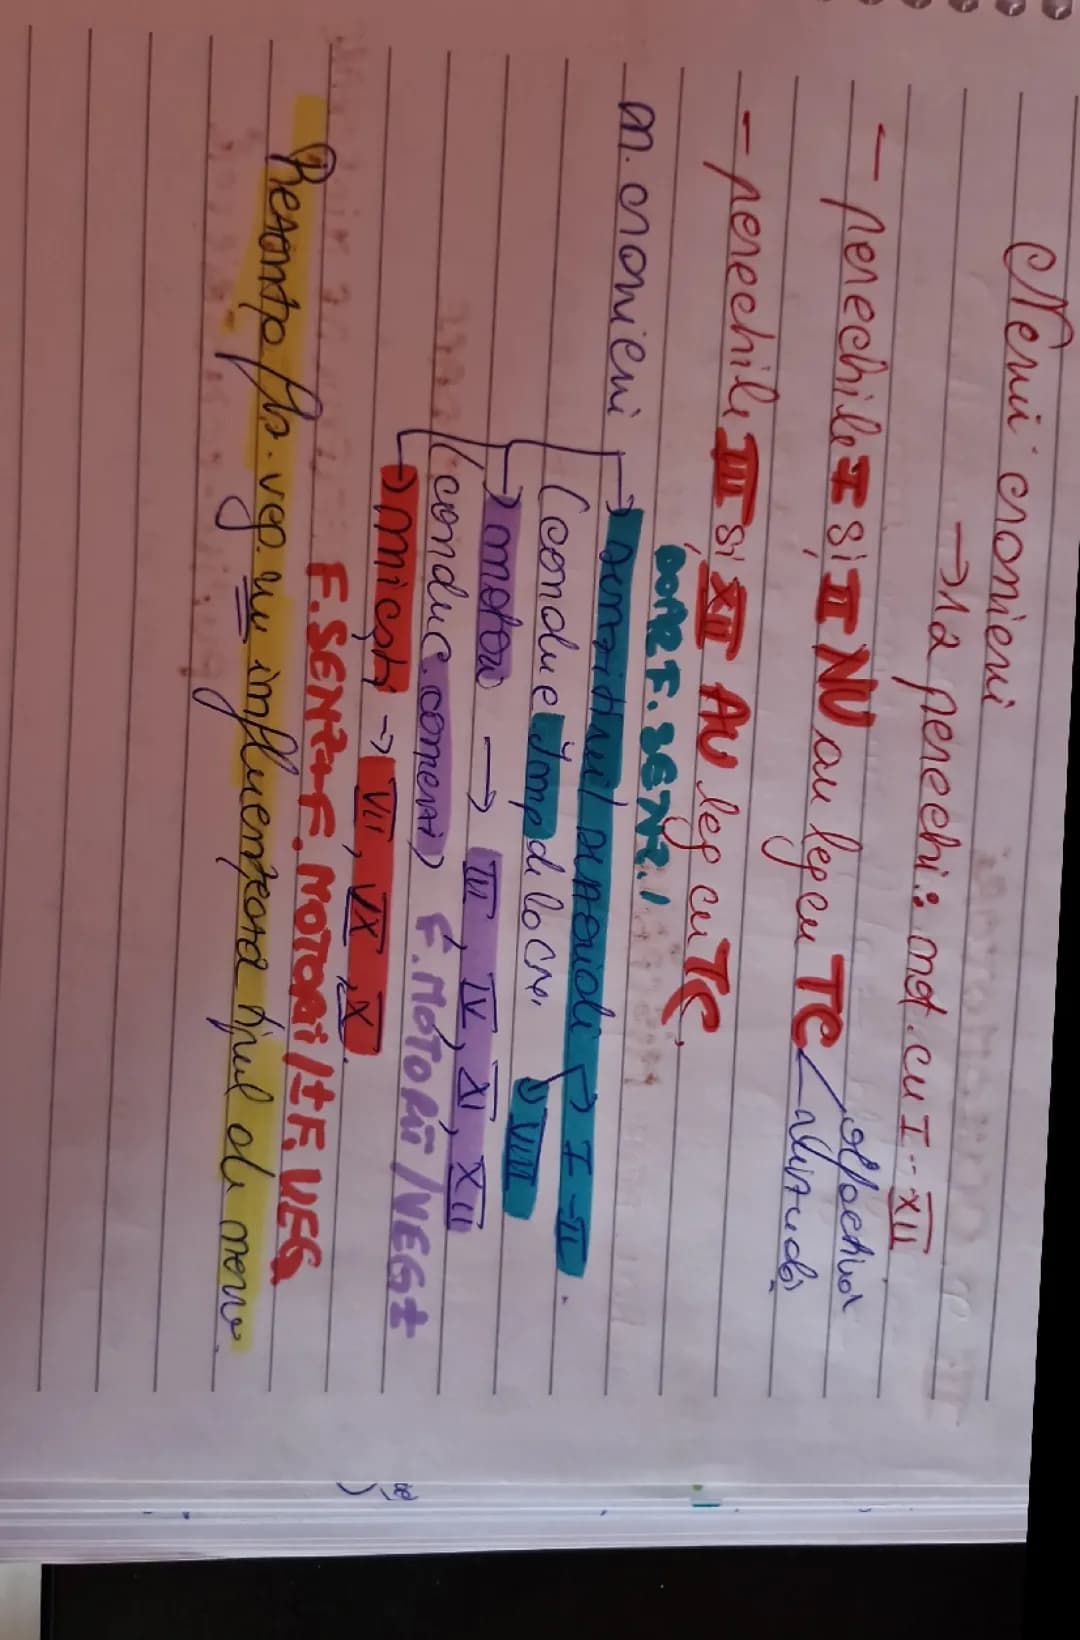 Nervi cranieni
→ 12 perechi: not. cu I - XII
- perechile I și II NU au leg cu TC olfactivi
nervi cranieni
- perechile III și XII AU leg cu TC.
DOAR F. SENZ.!
n. cranieni → senzitivi / senzoriali → I - II.
(conduc Imp de la CNS, VIII
→ motori → III, IV, XI, XII
(conduc comenzi) F. MOTORII / VEG ±
→ micști → VII, IX, X.
F. SENZ + F. MOTORI / ± F. VEG
Prezența fb. veg. nu influențează tipul de nerv.